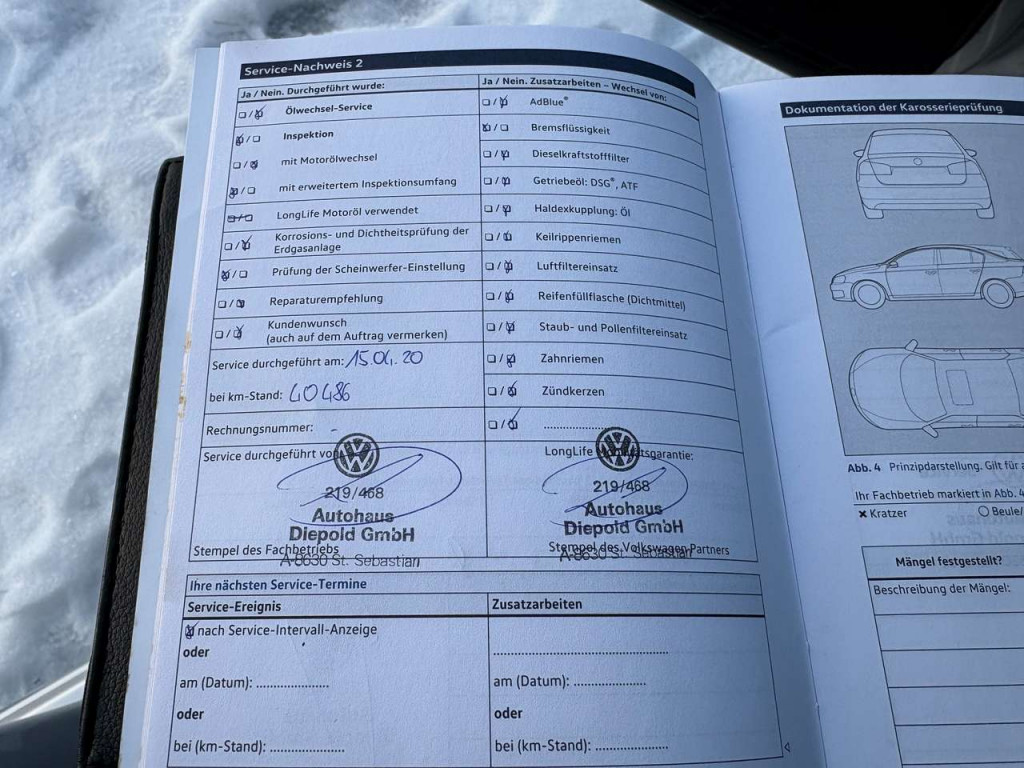 Service-Nachweis 2
Ja / Nein. Durchgeführt wurde:
Ölwechsel-Service
Inspektion
mit Motorölwechsel
mit erweitertem Inspektionsumfang
LongLife Motoröl verwendet
Korrosions- und Dichtheitsprüfung der
Erdgasanlage
Prüfung der Scheinwerfer-Einstellung
Reparaturempfehlung
Kundenwunsch
(auch auf dem Auftrag vermerken)
Service durchgeführt am: 15.04.20
bei km-Stand: 40486
Rechnungsnummer: -
Service durchgeführt von
219/468
Autohaus
Diepold GmbH
Stempel des Fachbetriebs
A-8630 St. Sebastian
Ja / Nein. Zusatzarbeiten – Wechsel von:
AdBlue®
Bremsflüssigkeit
Dieselkraftstofffilter
Getriebeöl: DSG®, ATF
Haldexkupplung: Öl
Keilrippenriemen
Luftfiltereinsatz
Reifenfüllflasche (Dichtmittel)
Staub- und Pollenfiltereinsatz
Zahnriemen
Zündkerzen
....................
LongLife Mobilitätsgarantie:
219/468
Autohaus
Diepold GmbH
Stempel des Volkswagen Partners
A-8630 St. Sebastian
Ihre nächsten Service-Termine
Service-Ereignis
nach Service-Intervall-Anzeige
oder
am (Datum): ....................
oder
bei (km-Stand): ....................
Zusatzarbeiten
................................................
am (Datum): ....................
oder
bei (km-Stand): ....................
Dokumentation der Karosserieprüfung
Abb. 4 Prinzipdarstellung. Gilt für
Ihr Fachbetrieb markiert in Abb. 4
× Kratzer
○ Beule/
Mängel festgestellt?
Beschreibung der Mängel: